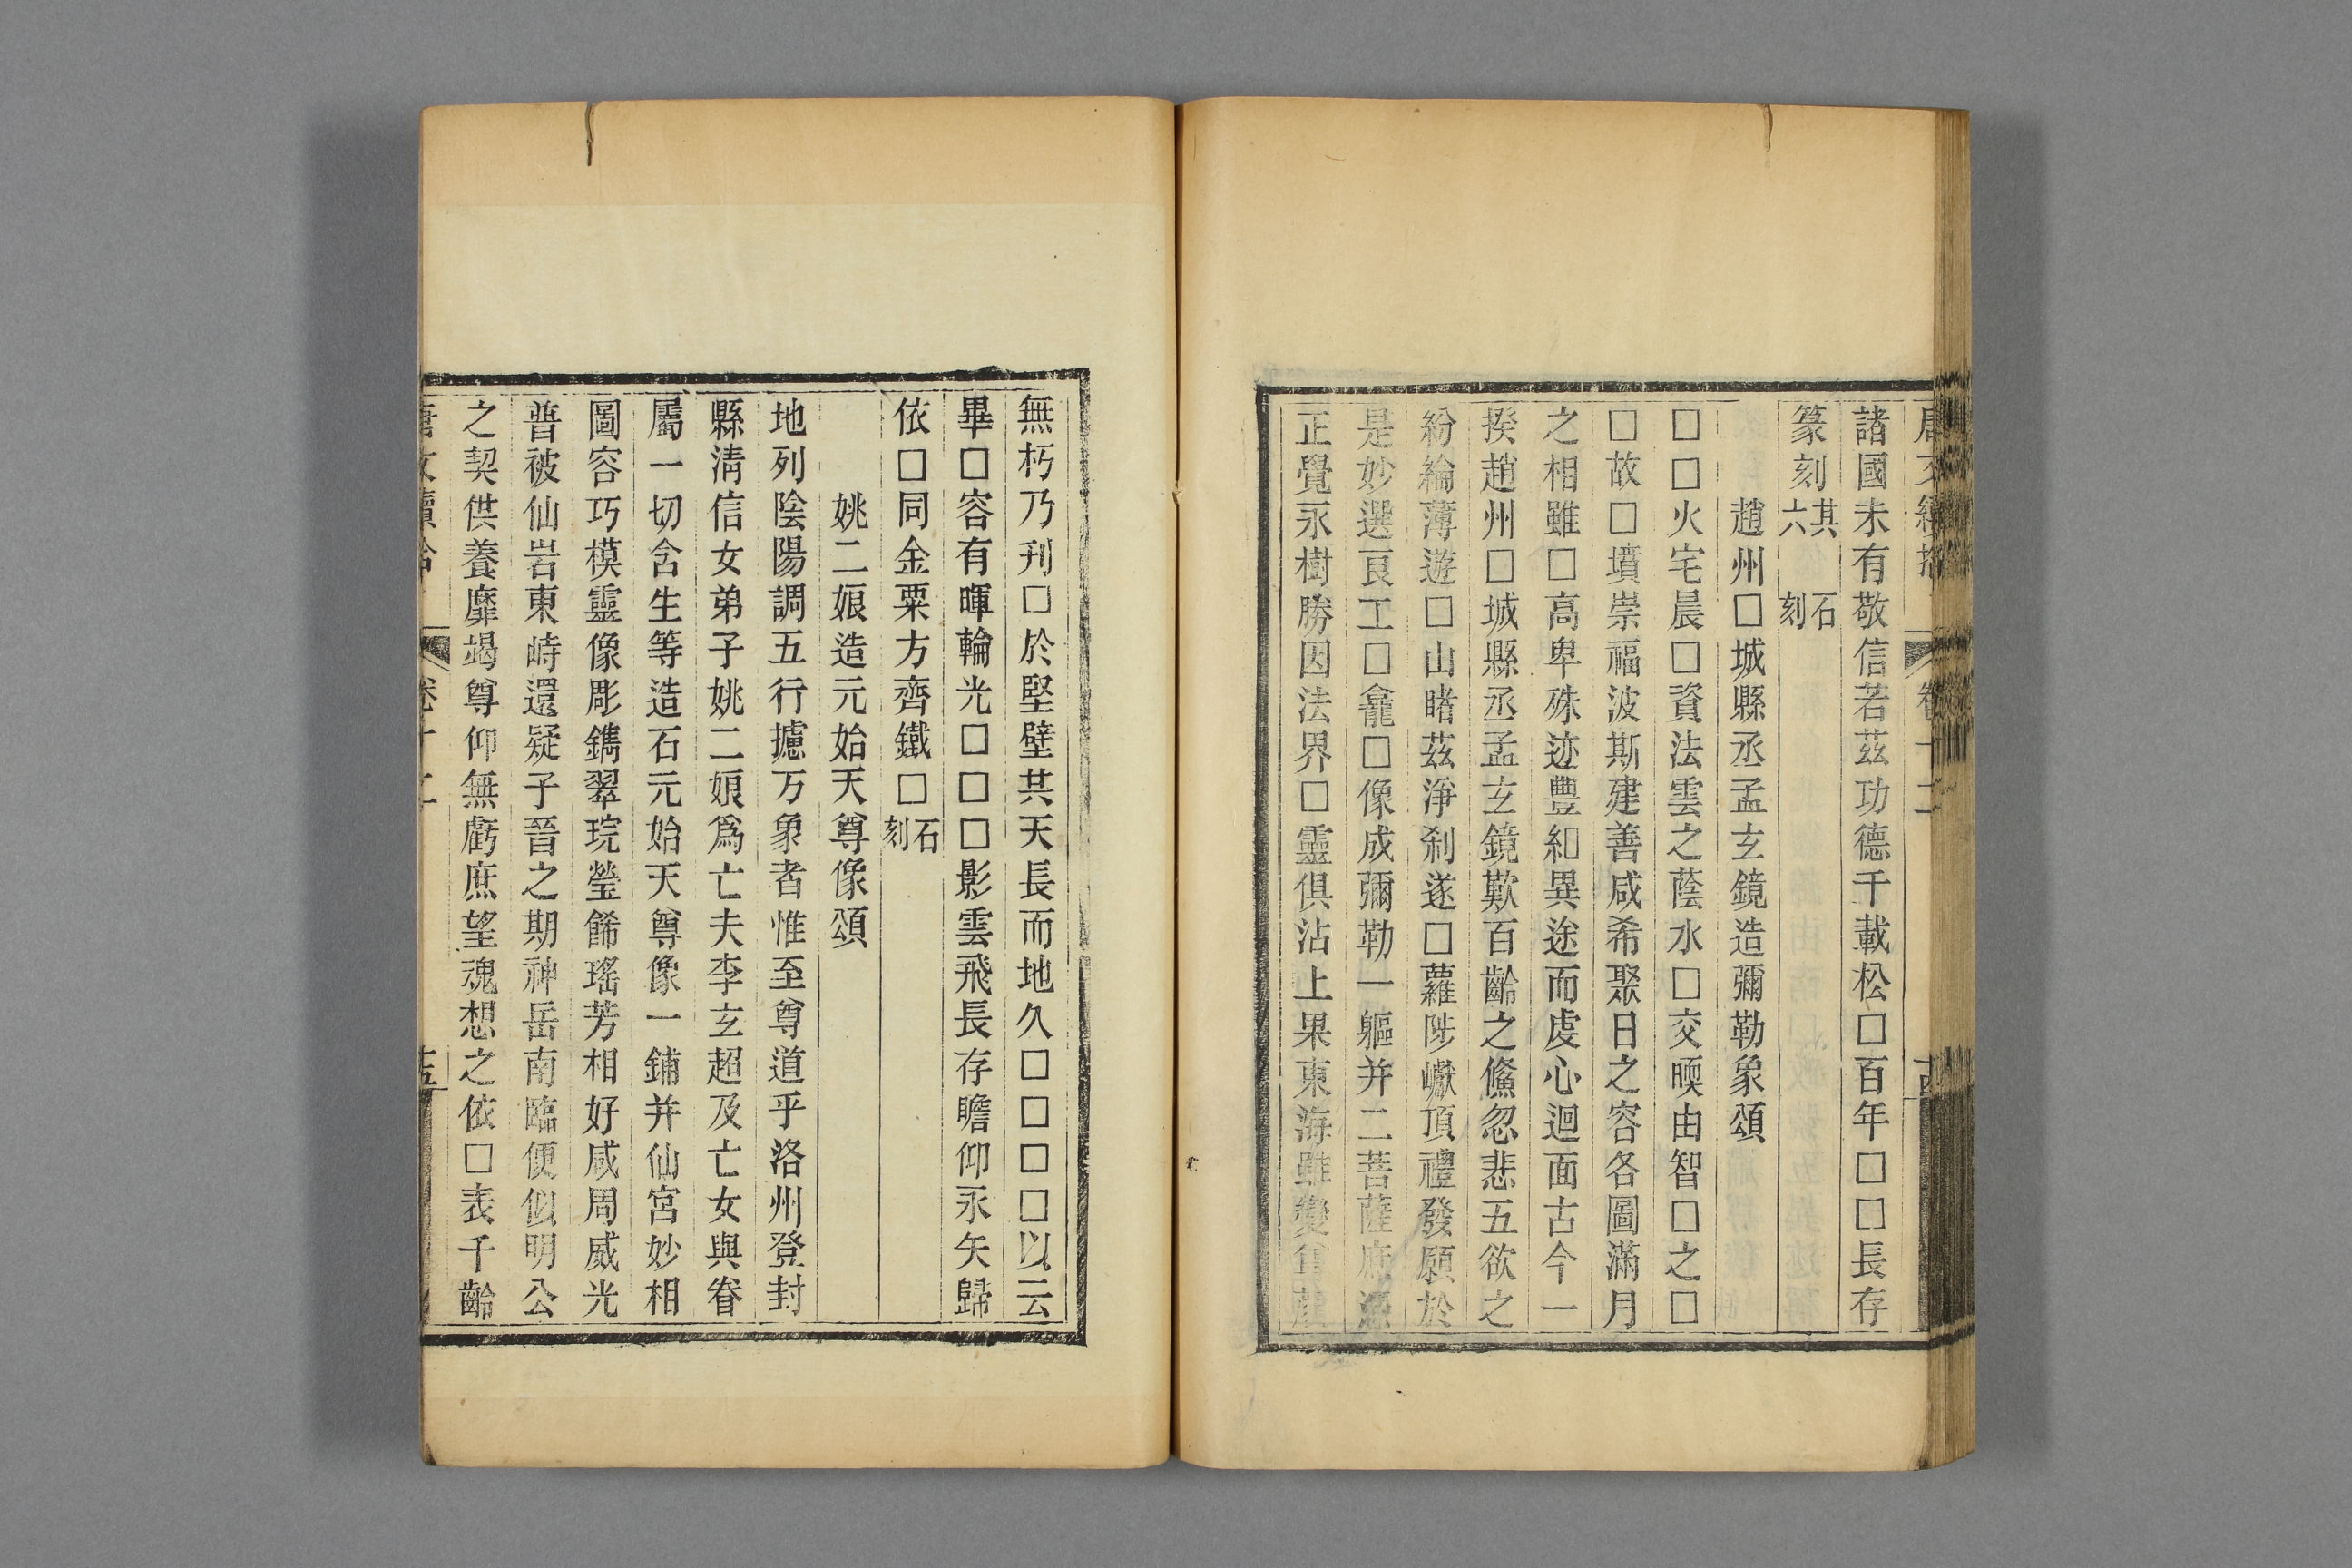 諸國未有敬信若茲功德千載松□百年□□長存
篆刻其六 石刻
趙州□城縣丞孟玄鏡造彌勒象頌
□□火宅晨□資法雲之蔭水□交㬇由智□之□
□故□墳崇福波斯建善咸希聚日之容各圖滿月
之相雖□高卑殊迹豊和異途而虔心迴面古今一
揆趙州□城縣丞孟玄鏡歎百齡之儵忽悲五欲之
紛綸薄遊□山睹茲淨剎遂□蘿陟巘頂禮發願於
是妙選良工□龕□像成彌勒一軀并二菩薩庶憑
正覺永樹勝因法界□靈俱沾上果東海雖變
無朽乃刊□於堅壁其天長而地久□□□□以云
畢□容有暉輪光□□□影雲飛長存瞻仰永矢歸
依□同金粟方齊鐵□石刻
姚二娘造元始天尊像頌
地列陰陽調五行攄万象者惟至尊道乎洛州登封
縣淸信女弟子姚二娘爲亡夫李玄超及亡女與眷
屬一切含生等造石元始天尊像一鋪并仙宮妙相
圖容巧模靈像彫鐫翠琓瑩餙瑤芳相好咸周威光
普被仙岩東峙還疑子晉之期神岳南臨便似明公
之契供養靡竭尊仰無虧庶望魂想之依□表千齡
唐文續拾 卷十二 十五